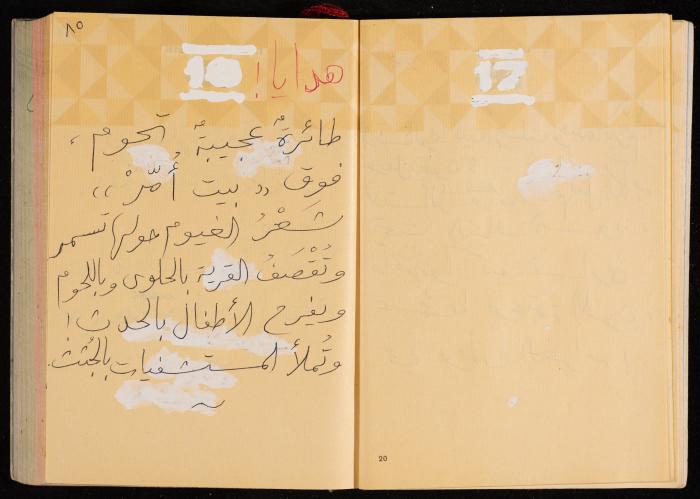 ٨٥
هدايا!
16
طائرةٌ عجيبةٌ تحوم،
فوق "بيت أُمّرْ"
شَعْرُ الغيوم حولها تسمر
وتُقْصَفُ القرية بالحلوى وباللحوم
ويفرح الأطفال بالحدث!
وتُملأ المستشفيات بالجُثث.
17
20